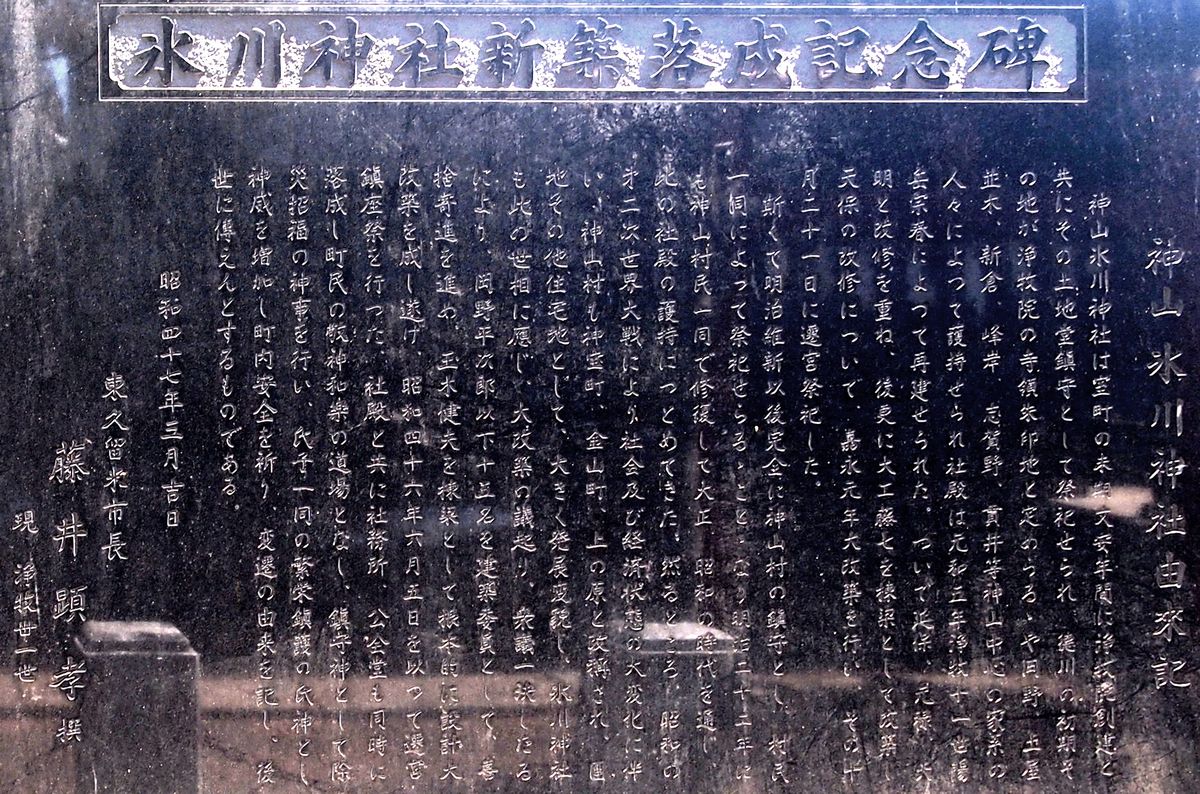 氷川神社新築落成記念碑
神山氷川神社由来記
神山氷川神社は室町の末期天安年間に浄牧院創建と
共にその土地堂鎮守として祭祀せられ 徳川の初期そ
の地が浄牧院の寺領朱印地と定めらるゝや田野 土屋
並木、新倉、峰岸、志賀野、貫井等神山中心の家系の
人々によつて護持せられ社殿は元和三年浄牧十一世陽
岳宗春によつて再建せられた。ついで延保、元禄、天
明と改修を重ね、後更に大工藤七を棟梁として改築し
天保の改修についで、嘉永元年大改築を行い その十
月二十一日に遷宮祭祀した。
斯くて明治維新以後完全に神山村の鎮守とし、村民
一同によって祭祀せらるゝことゝなり明治二十二年に
も神山村民一同で修復して大正 昭和の時代を通し
此の社殿の護持につとめてきた。然るところ、昭和の
才二次世界大戦により社会及び経済状態の大変化に伴
い、神山村も神宝町、金山町、上の原と改稱され、団
地その他住宅地として、大きく発展変貌し、氷川神社
も此の世相に應じ、大改築の議起り、衆議一決したる
により 岡野平次郎以下十五名を建築委員として、善
捨寄進を進め、玉木健夫を棟梁として根本的に設計大
改築を成し遂げ、昭和四十六年六月五日を以つて遷宮
鎮座祭を行つた。社殿と共に社務所 公会堂も同時に
落成し町民の敬神和楽の道場となし、鎮守神として除
災招福の神事を行い、氏子一同の繁栄鎮護の氏神とし
神威を増加し町内安全を祈り、変遷の由来を記し、後
世に傳えんとするものである。
昭和四十七年三月吉日
東久留米市長
藤井顕孝撰
現 浄牧廿一世